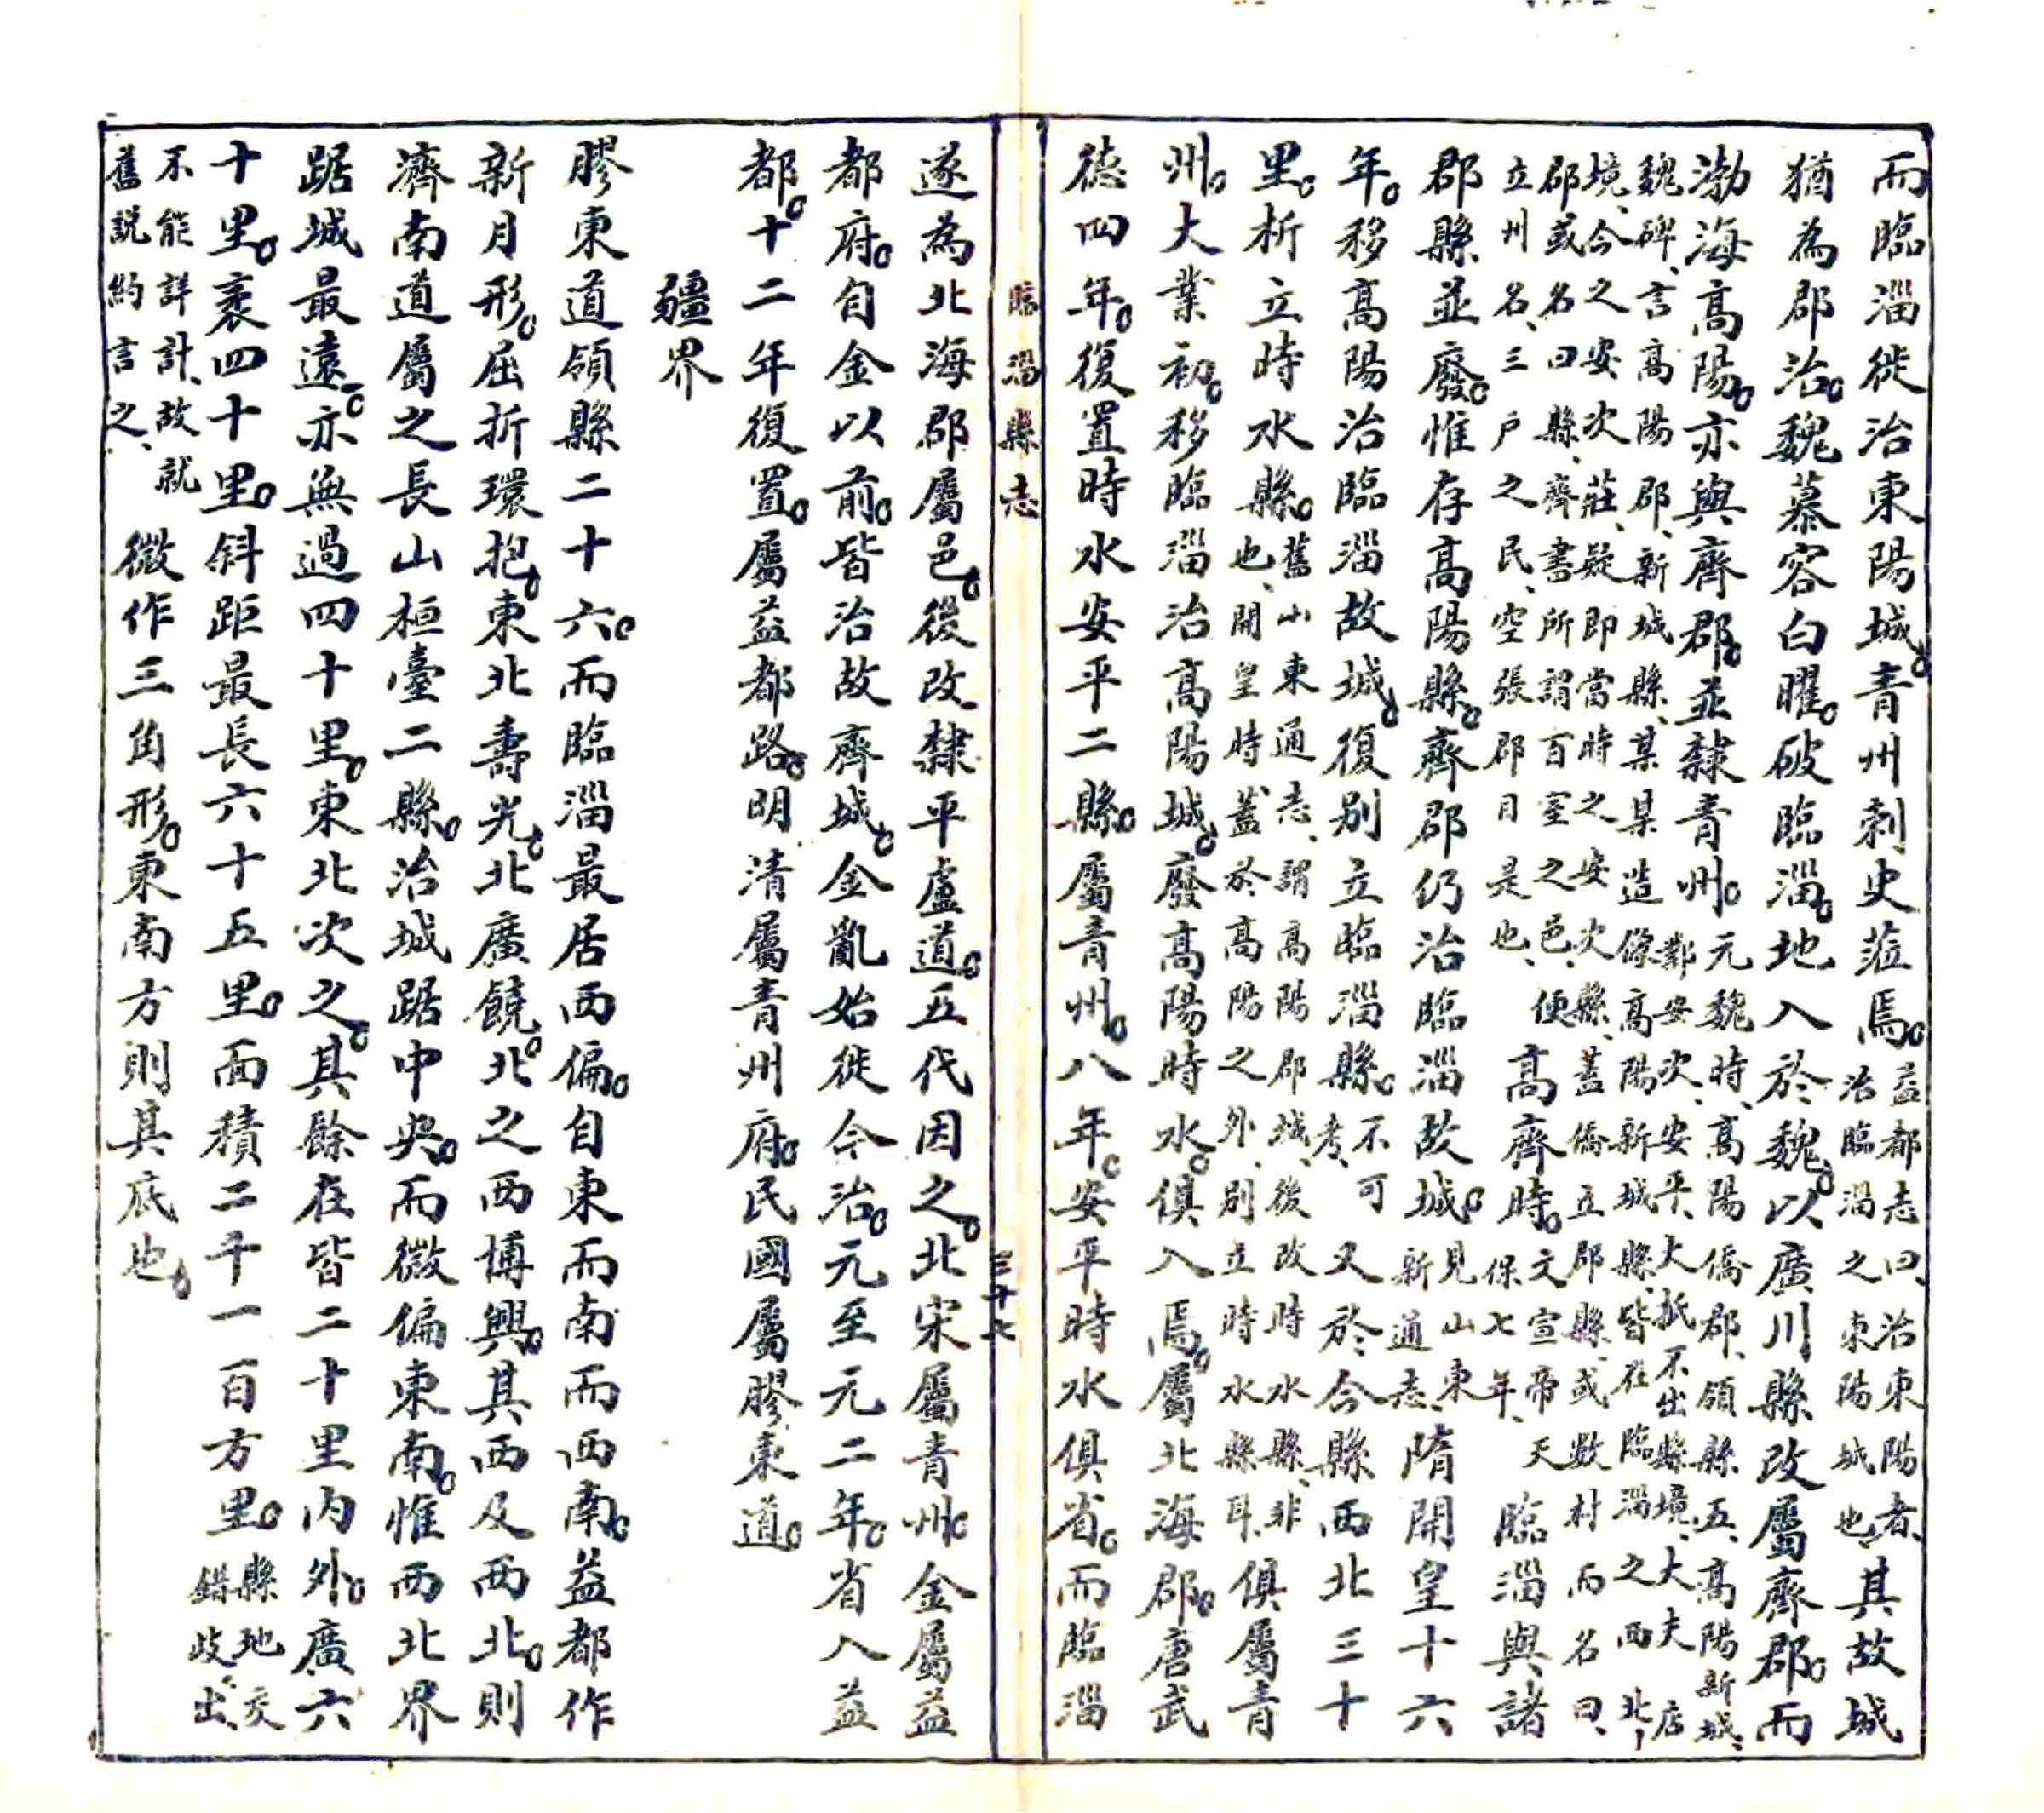 而臨淄徙治東陽城。青州刺史蒞焉。益都志曰、治東陽者、治臨淄之東陽城也、其故城
猶為郡治。魏慕容白曜。破臨淄。地入於魏。以廣川縣改屬齊郡。而
渤海高陽。亦與齊郡。並隸青州。元魏時、高陽僑郡、領縣五、高陽新城、鄴安次、安平、大抵不出縣境、大夫店
魏碑、言高陽郡、新城縣、某某造像高陽新城縣、皆在臨淄之西北、
境、今之安次莊、疑即當時之安次縣、蓋僑立郡縣、或數村而名曰、
郡或名曰縣、齊書所謂百室之邑、便
立州名、三戶之民、空張郡目是也、高齊時。文宣帝天保七年、臨淄與諸
郡縣並廢。惟存高陽縣。齊郡仍治臨淄故城。見山東新通志、隋開皇十六
年。移高陽治臨淄故城。復別立臨淄縣。不可考、又於今縣西北三十
里。析立時水縣。舊山東通志、謂高陽郡城、後改時水縣、非也、開皇時蓋於高陽之外、別立時水縣耳、俱屬青
州。大業初。移臨淄治高陽城。廢高陽時水。俱入焉。屬北海郡。唐武
德四年。復置時水安平二縣。屬青州。八年。安平時水俱省。而臨淄
臨淄縣志 三十七
遂為北海郡屬邑。後改隸平盧道。五代因之。北宋屬青州。金屬益
都府。自金以前。皆治故齊城。金亂始徙今治。元至元二年。省入益
都。十二年復置。屬益都路。明清屬青州府。民國屬膠東道。
疆界
膠東道領縣二十六。而臨淄最居西偏。自東而南而西南。益都作
新月形。屈折環抱。東北壽光。北廣饒。北之西博興。其西及西北。則
濟南道屬之長山桓臺二縣。治城踞中央。而微偏東南。惟西北界
踞城最遠。亦無過四十里。東北次之。其餘在皆二十里內外。廣六
十里。袤四十里。斜距最長六十五里。面積二千一百方里。縣地交錯歧出、
不能詳計、故就舊說約言之、微作三角形。東南方則其底也。